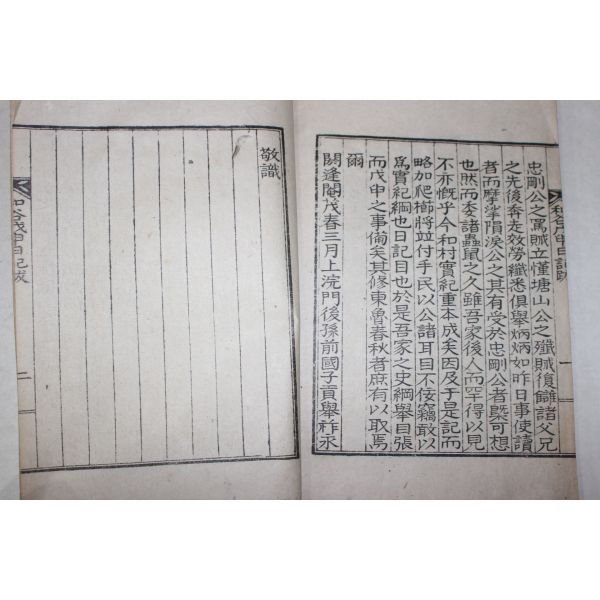 忠剛公之罵賊立慬塘山公之殱賊復讎諸父兄
之先後奔走效勞纖悉俱擧炳炳如昨日事使讀
者而摩挲隕淚公之其有受於忠剛公者槩可想
也然而委諸蟲鼠之久雖吾家後人而罕得以見
不亦慨乎今和村實紀重本成矣因及于是記而
略加爬櫛將竝付手民以公諸耳目不佞竊敢以
爲實紀綱也日記目也於是吾家之史綱擧目張
而戊申之事備矣其修東魯春秋者庶有以取焉
爾
閼逢閹茂春三月上浣門後孫前國子貢擧祚永
敬識
和谷戊申日記跋
一
和谷戊申日記跋
二